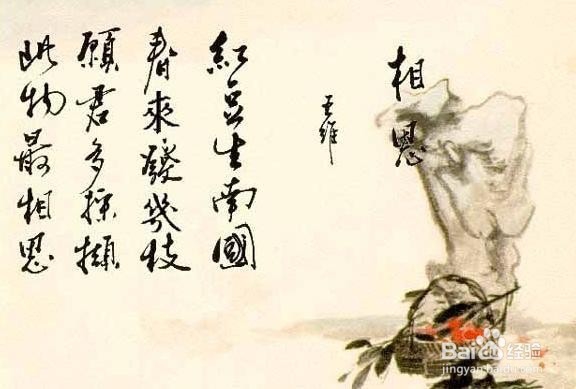 相思
王維
紅豆生南國
春來發幾枝
願君多採擷
此物最相思
Baidu 经验
jingyan.baidu.com